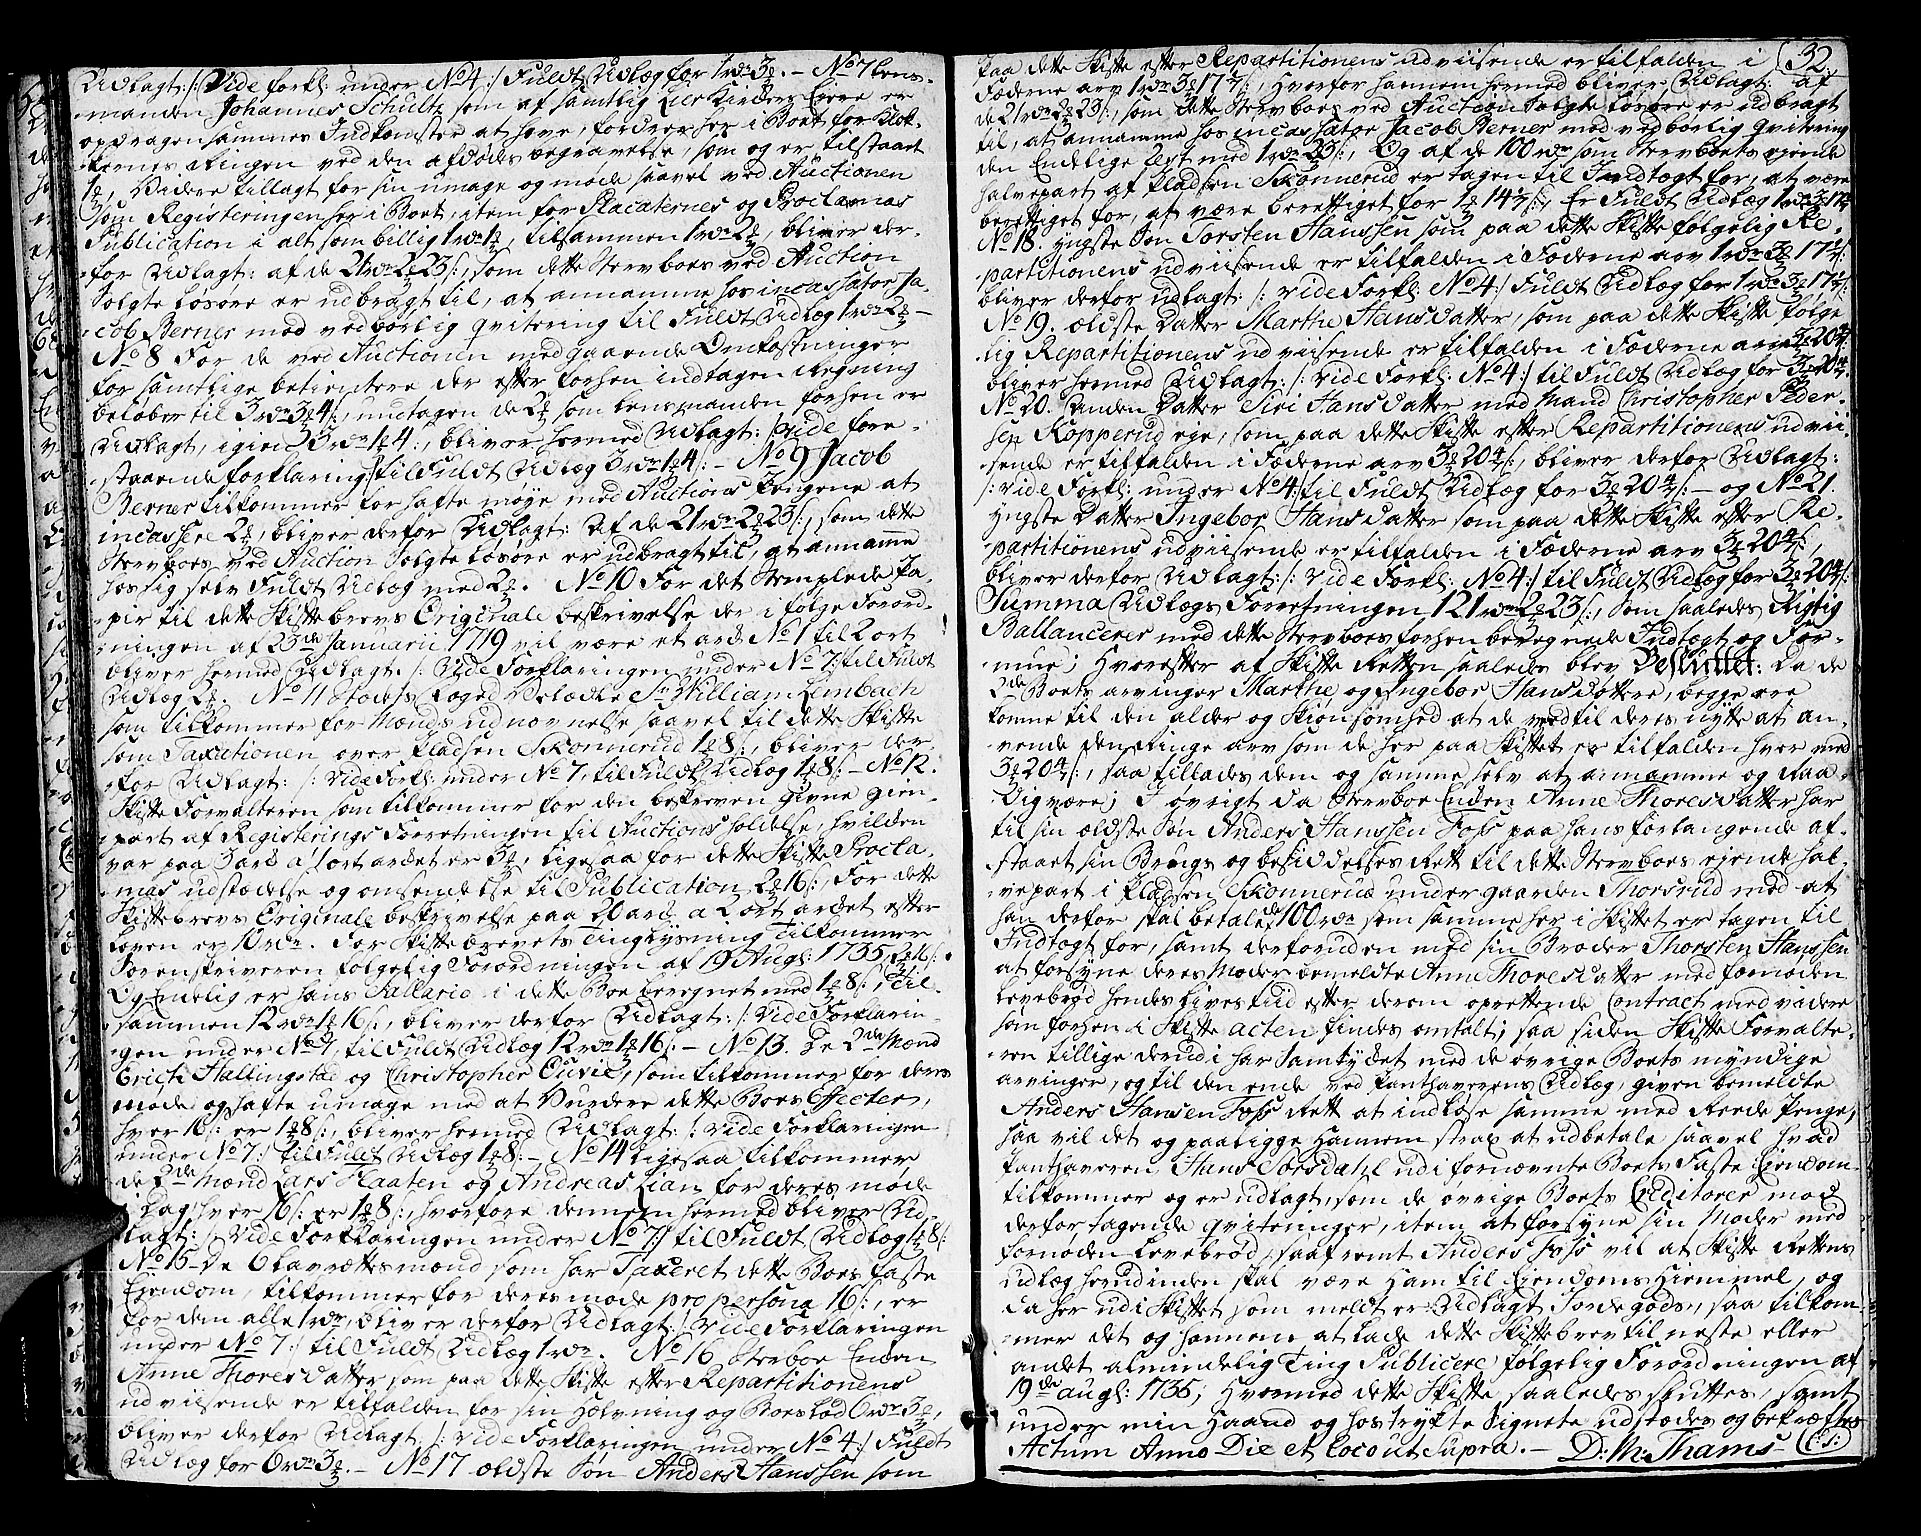 Udlagt: /: Vide forkl: under No 4 :/ Fuldt Udlæg for 1 rdr 3 - No 7 Lens-
manden Johannes Schultz som af samtlig Lier Kirkers Eiere er
opdragen sammes Indkomster at hæve, fordrer her i Boet for Klok-
kernes Ringen ved den afdødes begravelse, som og er tilstaaet
1, Videre tillagt for sin umage og møde saavel ved Auctionen
som Registeringen her i Boet, item for Placaternes og Proclamas
Publication i alt som billig 1 rdr 1, tilsammen 1 rdr 2, bliver der-
for Udlagt: af de 21 rdr 2 23 s:, som dette Sterboes ved Auction
Solgte Løsøre er udbragt til, at annamme hos incassator Ja-
cob Berner med vedbørlig qvitering til Fuldt Udlæg 1 rdr 2 -
No 8 For de ved Auctionen medgaaende Omkostninger
for samtlige betientere der efter forhen indtagen Regning
beløber til 3 rdr 3 4 s:, undtagen de 2 som Lensmanden forhen er
Udlagt, igien 3 rdr 1 4 s:, bliver hermed Udlagt: /: vide fore-
staaende forklaring :/ til Fuldt Udlæg 3 rdr 1 4 s: - No 9 Jacob
Berner tilkommer for hafte møye med Auctions Pengene at
incassere 2, bliver derfor Udlagt: Af de 21 rdr 2 23 s:, som dette
Sterboes ved Auction Solgte Løsøre er udbragt til, at annamme
hos sig selv Fuldt Udlæg med 2. No 10 For det Stemplede Pa-
pir til dette Skiftebrevs Originale beskrivelse der i følge Forord-
ningen af 23de Januarii 1719 vil være et ark No 1 til 2 ort
bliver hermed Udlagt: /: Vide Forklaringen under No 7 :/ til Fuldt
Udlæg 2. No 11 Stedets Foged Velædle Sr William Lembach
som tilkommer for Mænds udnævnelse saavel til dette Skifte
som Taxationen over Pladsen Skonnerud 1 8 s:, bliver der-
for Udlagt: /: Vide Forkl: under No 7, til Fuldt Udlæg 1 8 s: - No 12.
Skifte Forvalteren som tilkommer for den beskreven givne gien-
part af Registerings Forretningen til Auctions holdelse, hvilken
var paa 3 ark a 1 ort arket er 3, ligesaa for dette Skifte Procla-
mas udstædelse og omsendelse til Publication 2 16 s:, For dette
Skiftebrevs Originale beskrivelse paa 20 ark a 2 ort arket efter
Loven er 10 rdr. For Skiftebrevets Tinglysning tilkommer
Sorenskriveren følgelig Forordningen af 19 Augs: 1735, 2 16 s:.
Og Endelig er hans Sallario i dette Boe beregnet med 1 8 s:, Til-
sammen 12 rdr 1 16 s:, bliver derfor Udlagt: /: Vide Forklarin-
gen under No 7, til Fuldt Udlæg 12 rdr 1 16 s: - No 13. De 2de Mænd
Erich Hallingstad og Christopher Euvie, som tilkommer for deres
møde og hafte umage med at Vurdere dette Boes Effecter,
hver 16 s: er 1 8 s:, bliver hermed Udlagt: /: Vide Forklaringen
under No 7 :/ til Fuldt Udlæg 1 8 s: - No 14 Ligesaa tilkommer
de 2de Mænd Lars Flaaten og Andreas Lian for deres møde
i Dag hver 16 s: er 1 8 s:, hvorfore dennem hermed bliver Ud-
lagt: /: Vide Forklaringen under No 7 :/ til Fuldt Udlæg 1 8 s:
No 15 De 6 Lavrettesmænd som har Taxeret dette Boes faste
Eiendom, tilkommer for deres møde pro persona 16 s:, er
for dem alle 1 rdr, bliver derfor Udlagt: /: Vide Forklaringen
under No 7 :/ til Fuldt Udlæg 1 rdr. No 16 Sterboe Enken
Anne Thoresdatter som paa dette Skifte efter Repartitionens
udviisende er tilfalden for sin Holvning og Boeslod 6 rdr 3,
bliver derfor Udlagt: /: Vide Forklaringen under No 4 :/ Fuldt
Udlæg for 6 rdr 3. - No 17 ældste Søn Anders Hanssen som
32
paa dette Skifte efter Repartitionens udviisende er tilfalden i
Fæderne arv 1 rdr 3 17 s:, Hvorfor hannem hermed bliver Udlagt: af
de 21 rdr 2 23 s:, som dette Sterboes ved Auction Solgte Løsøre er udbragt
til, at annamme hos incassator Jacob Berner med vedbørlig qvitering
den Endelige Rest med 1 rdr 23 s:, Og af de 100 rdr som Sterboets ejende
halvepart af Pladsen Skonnerud er tagen til Indtægt for, at være
berettiget for, at være berettiget for 1 14 s:, Er Fuldt Udlæg 1 rdr 3 17
No 18. yngste Søn Torsten Hanssen som paa dette Skifte følgelig Re-
partitionens udviisende er tilfalden i Fæderne arv 1 rdr 3 17 s:
bliver derfor udlagt: /: vide Forkl: No 4 :/ Fuldt Udlæg for 1 rdr 3 17 s:
No 19. ældste Datter Marthe Hansdatter, som paa dette Skifte følge-
lig Repartitionens udviisende er tilfalden i Fæderne arv 3 20 s:
bliver hermed Udlagt: /: Vide Forkl: No 4 :/ til Fuldt Udlæg for 3 20
No 20. Anden Datter Siri Hansdatter med Mand Christopher Peder-
sen Kopperud eje, som paa dette Skifte efter Repartitionens udvii-
sende er tilfalden i Fæderne arv 3 20 s:, bliver derfor Udlagt:
/: Vide Forkl: under No 4 :/ til Fuldt Udlæg for 3 20 s: - og No 21.
yngste Datter Ingebor Hansdatter som paa dette Skifte efter Re-
partitionens udviisende er tilfalden i Fæderne arv 3 20 s:,
bliver derfor Udlagt: /: Vide Forkl: No 4 :/ til Fuldt Udlæg for 3 20 s:
Summa Udlægs Forretningen 121 rdr 2 23 s:, Som saaledes Rigtig
Ballancerer med dette Sterboes forhen beregnede Indtægt og For-
mue; Hvorefter af Skifte Retten saaledes blev Besluttet: Da de
2de Boets arvinger Marthe og Ingebor Hansdøttere, begge ere
komne til den alder og Skiønsomhed at de veed til deres nytte at an-
vende den Ringe arv som de her paa Skiftet er tilfalden hver med
3 20 s:, saa tillades dem og samme selv at annamme og Raa-
dig være; I øvrigt da Sterboe Enken Anne Thoresdatter har
til sin ældste Søn Anders Hanssen Foss paa hans forlangende af-
staaet sin Brugs og besiddelses Rett til dette Sterboes ejende hal-
vepart i Pladsen Skonnerud under gaarden Thorsrud med at
han derfor skal betale de 100 rdr som samme her i Skiftet er tagen til
Indtægt for, samt derforuden med sin Broder Thorsten Hanssen
at forsyne deres Moder bemeldte Anne Thoresdatter med fornøden
Levebrød hendes Livestiid efter derom oprettende Contract med videre
som forhen i Skifte acten findes omtalt; saa siden Skifte Forvalte-
ren tillige derudi har Samtykket med de øvrige Boets myndige
arvinger, og til den ende ved Panthaverens Udlæg, given bemeldte
Anders Hansen Foss Rett at indløse samme med Rede Penge,
saa vil det og paaligge Hannem strax at udbetale saavel hvad
Panthaveren Hans Sørsdahl udi fornævnte Boets Faste Eiendom
tilkommer og er udlagt, som de øvrige Boets Creditorer mod
derfor tagende qviteringer, item at forsyne sin Moder med
fornøden Levebrød, saafremt Anders Foss vil at Skifte Rettens
udlæg herudinden skal være Ham til Eiendoms Hiemmel, og
da her udi Skiftet som meldt er Udlagt Jordegods, saa tilkom-
mer det og hannem at lade dette Skiftebrev til neste eller
andet almindelig Ting Publicere følgelig Forordningen af
19de augs: 1735; Hvormed dette Skifte saaledes sluttes, samt
under min Haand og hostrykte Signete udstædes og bekræftes
Actum Anno Die et Loco ut Supra. - D: M: Thams (L:S:)